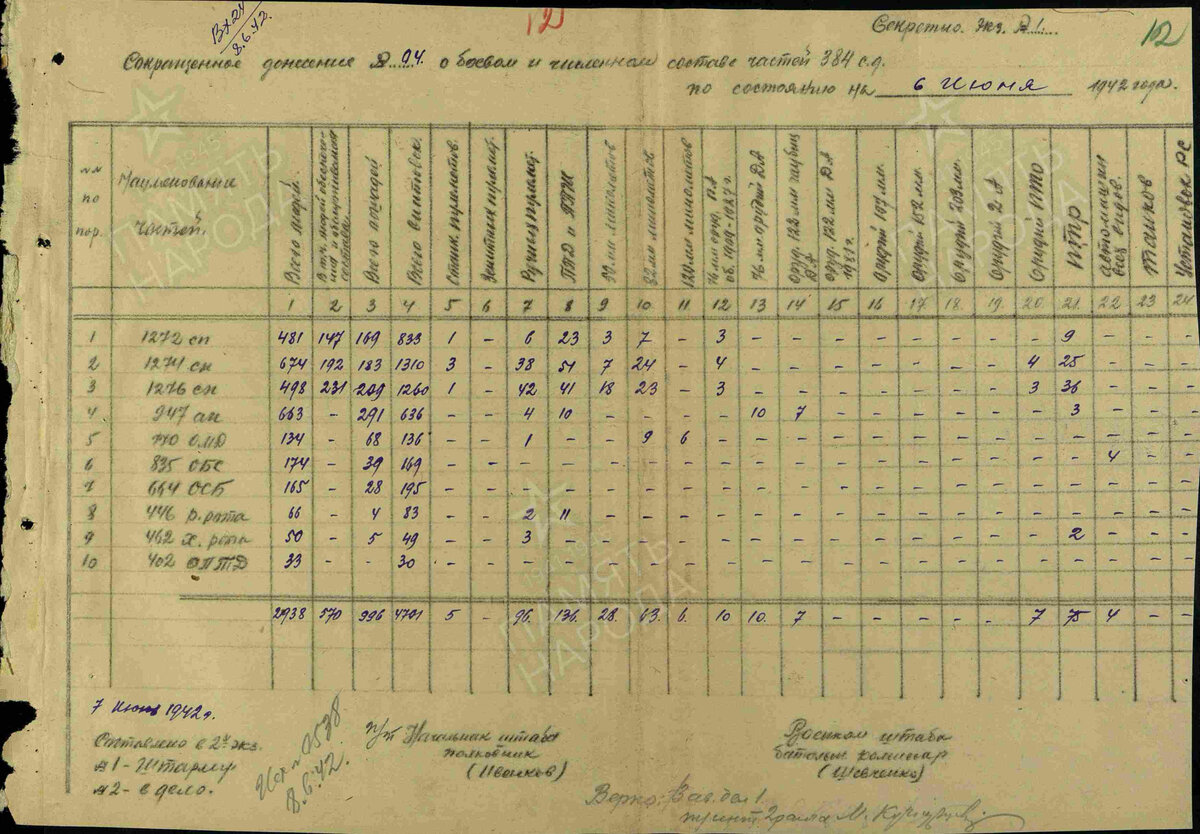 Вх 24
8.6.42.
12
Секретно. Экз. №1.
12
Сокращенное донесение № 94. о боевом и численном составе частей 384 с.д.
по состоянию на 6 Июня 1942 года.
№№ по пор. Наименование частей. Всего людей В т.ч. людей Всего лошадей Всего винтовок. Станк. пулеметов. Зенитных пулемет. Ручных пулемет. ППД и ППШ 50 мм минометов 82 мм минометов 120 мм минометов 76 мм оруд. ПА об. 1909-1927 г. 76 мм. орудий ДА оруд. 122 мм гаубиц ДА оруд. 122 мм ДА Орудий 107 мм. Орудий 152 мм. Орудий 203 мм. Орудий З.А Орудий ПТО ПТР автомашин всех видов. Танков Установок РС
1 2 3 4 5 6 7 8 9 10 11 12 13 14 15 16 17 18 19 20 21 22 23 24
1 1272 сп 481 147 169 833 1 - 6 23 3 7 - 3 - - - - - - - - 9 - - -
2 1274 сп 674 192 183 1310 3 - 38 51 7 24 - 4 - - - - - - - 4 25 - - -
3 1276 сп 498 231 209 1260 1 - 42 41 18 23 - 3 - - - - - - - 3 36 - - -
4 947 ап 663 - 291 636 - - 4 10 - - - - 10 7 - - - - - - 3 - - -
5 ОМД 134 - 68 136 - - 1 - - 9 6 - - - - - - - - - - - - -
6 835 ОБС 174 - 39 169 - - - - - - - - - - - - - - - - - 4 - -
7 664 ОСБ 165 - 28 195 - - - - - - - - - - - - - - - - - - - -
8 446 р. рота 66 - 4 83 - - 2 11 - - - - - - - - - - - - - - - -
9 462 х. рота 50 - 5 49 - - 3 - - - - - - - - - - - - - 2 - - -
10 402 ОПТД 33 - - 30 - - - - - - - - - - - - - - - - - - - -
2938 570 996 4701 5 - 96. 136. 28. 63. 6. 10 10. 7 - - - - - 7 75 4 - -
7 Июня 1942 г.
Составлено в 2х экз.
№1 - Штарму
№2 - в дело.
Исх №0538
8.6.42.
п/п Начальник штаба
полковник
(Иванков)
Военком штаба
батальон. комиссар
(Шевченко)
Верно: Зав. дел 1.